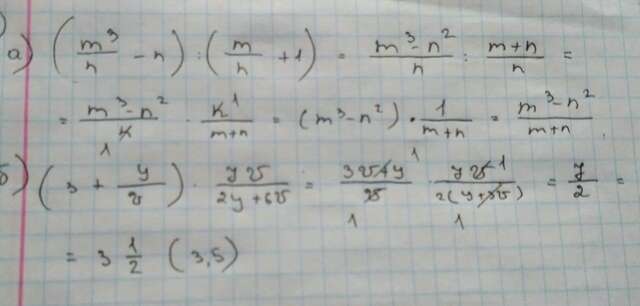 а) (m³/n - n) : (m/n + 1) = (m³-n²)/n : (m+n)/n =
= (m³-n²)/n · n¹/(m+n) = (m³-n²) · 1/(m+n) = (m³-n²)/(m+n)
1
б) (3 + y/v) · yv/(2y+6v) = (3v+y)¹/v · yv¹/(2(y+3v)) = y/2 =
1 1
= 3 1/2 (3,5)